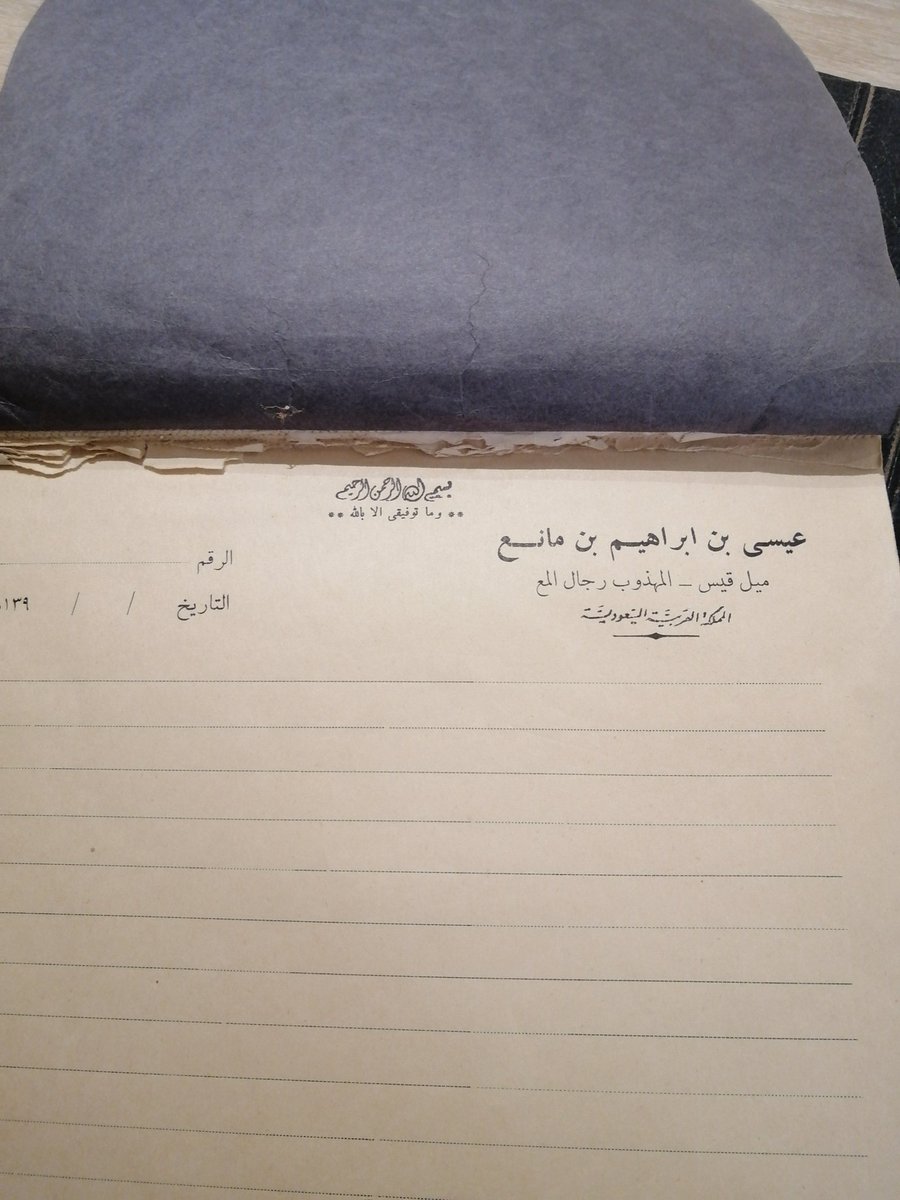 بسم الله الرحمن الرحيم
** وما توفيقى الا بالله **
عيسى بن ابراهيم بن مانع
ميل قيس - المهذوب رجال المع
المملكة العربية السعودية
الرقم
التاريخ / / ١٣٩